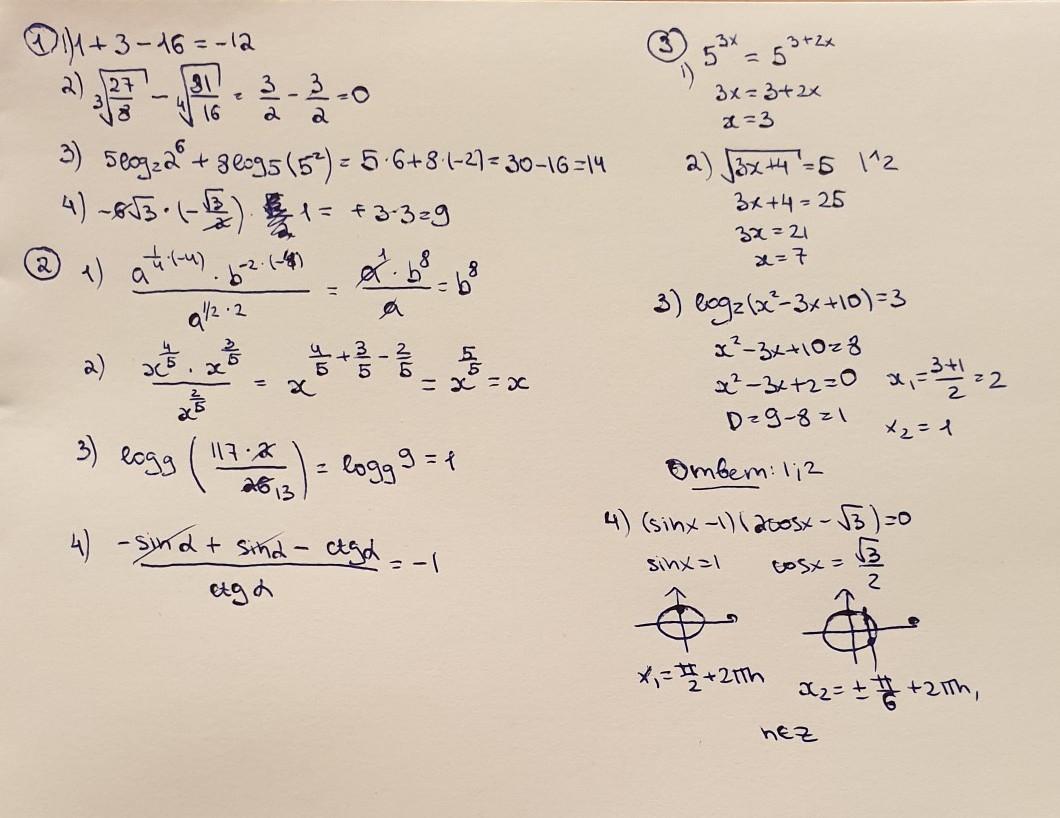 ① 1) 1 + 3 − 16 = −12
2) ∛(27/8) − ∜(81/16) = 3/2 − 3/2 = 0
3) 5log₂2⁶ + 8log5(5²) = 5·6 + 8·(−2) = 30−16 = 14
4) −6√3 · (−√3/2) · 1 = +3·3 = 9
② 1) (a^(1/4·(−4)) · b^(−2·(−4))) / a^(1/2·2) = (a¹ · b⁸) / a = b⁸
2) (x^(4/5) · x^(3/5)) / x^(2/5) = x^(4/5 + 3/5 − 2/5) = x^(5/5) = x
3) log₉(117·2 / 26 13) = log₉9 = 1
4) (−sinα + sinα − ctgα) / ctgα = −1
③ 1) 5^(3x) = 5^(3+2x)
3x = 3+2x
x = 3
2) √(3x+4) = 5 |^2
3x+4 = 25
3x = 21
x = 7
3) log₂(x²−3x+10) = 3
x²−3x+10 = 8
x²−3x+2 = 0 x₁ = (3+1)/2 = 2
D = 9−8 = 1 x₂ = 1
Ответ: 1; 2
4) (sinx −1)(2cosx − √3) = 0
sinx = 1 cosx = √3/2
x₁ = π/2 + 2πn x₂ = ± π/6 + 2πn,
n∈Z